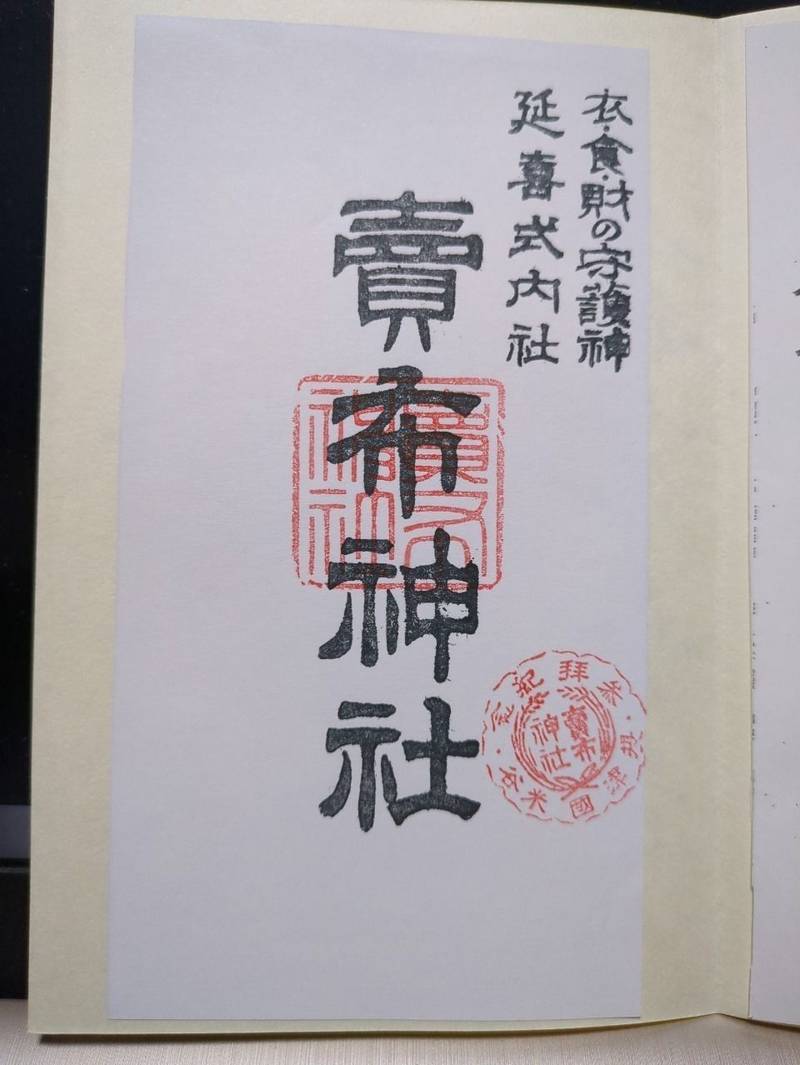 衣・食・財の守護神
延喜式内社
賣布神社
賣布
神社
参拝記念・摂津國米谷
賣布
神社